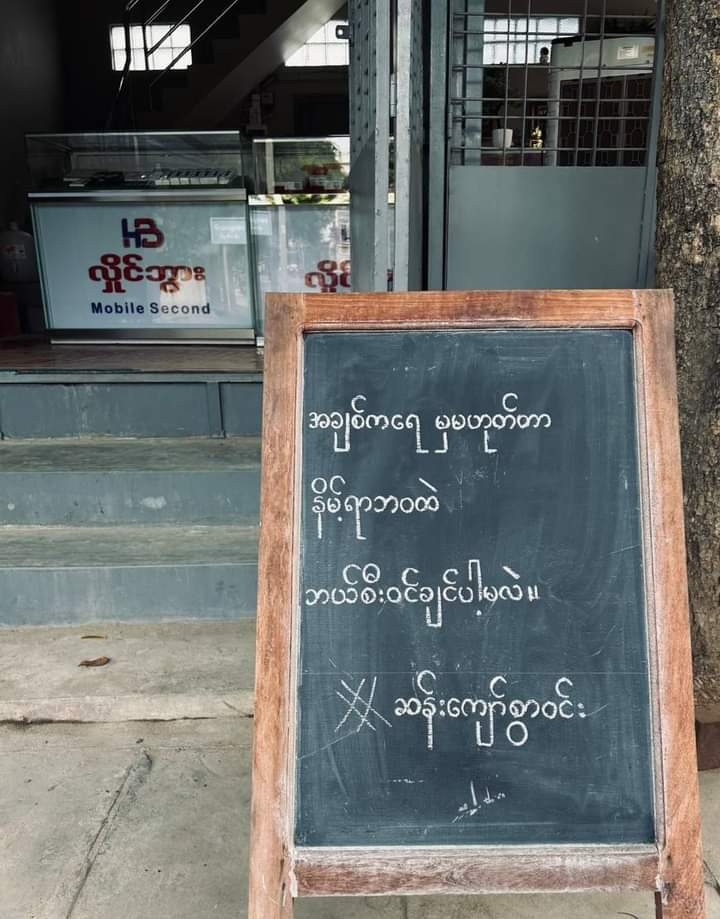 HB
လှိုင်ဘွား
Mobile Second
အချစ်ကရေ မှမဟုတ်တာ
နိမ့်ရာဘဝထဲ
ဘယ်စီးဝင်ချင်ပါ့မလဲ။
ဆန်းကျော်စွာဝင်း